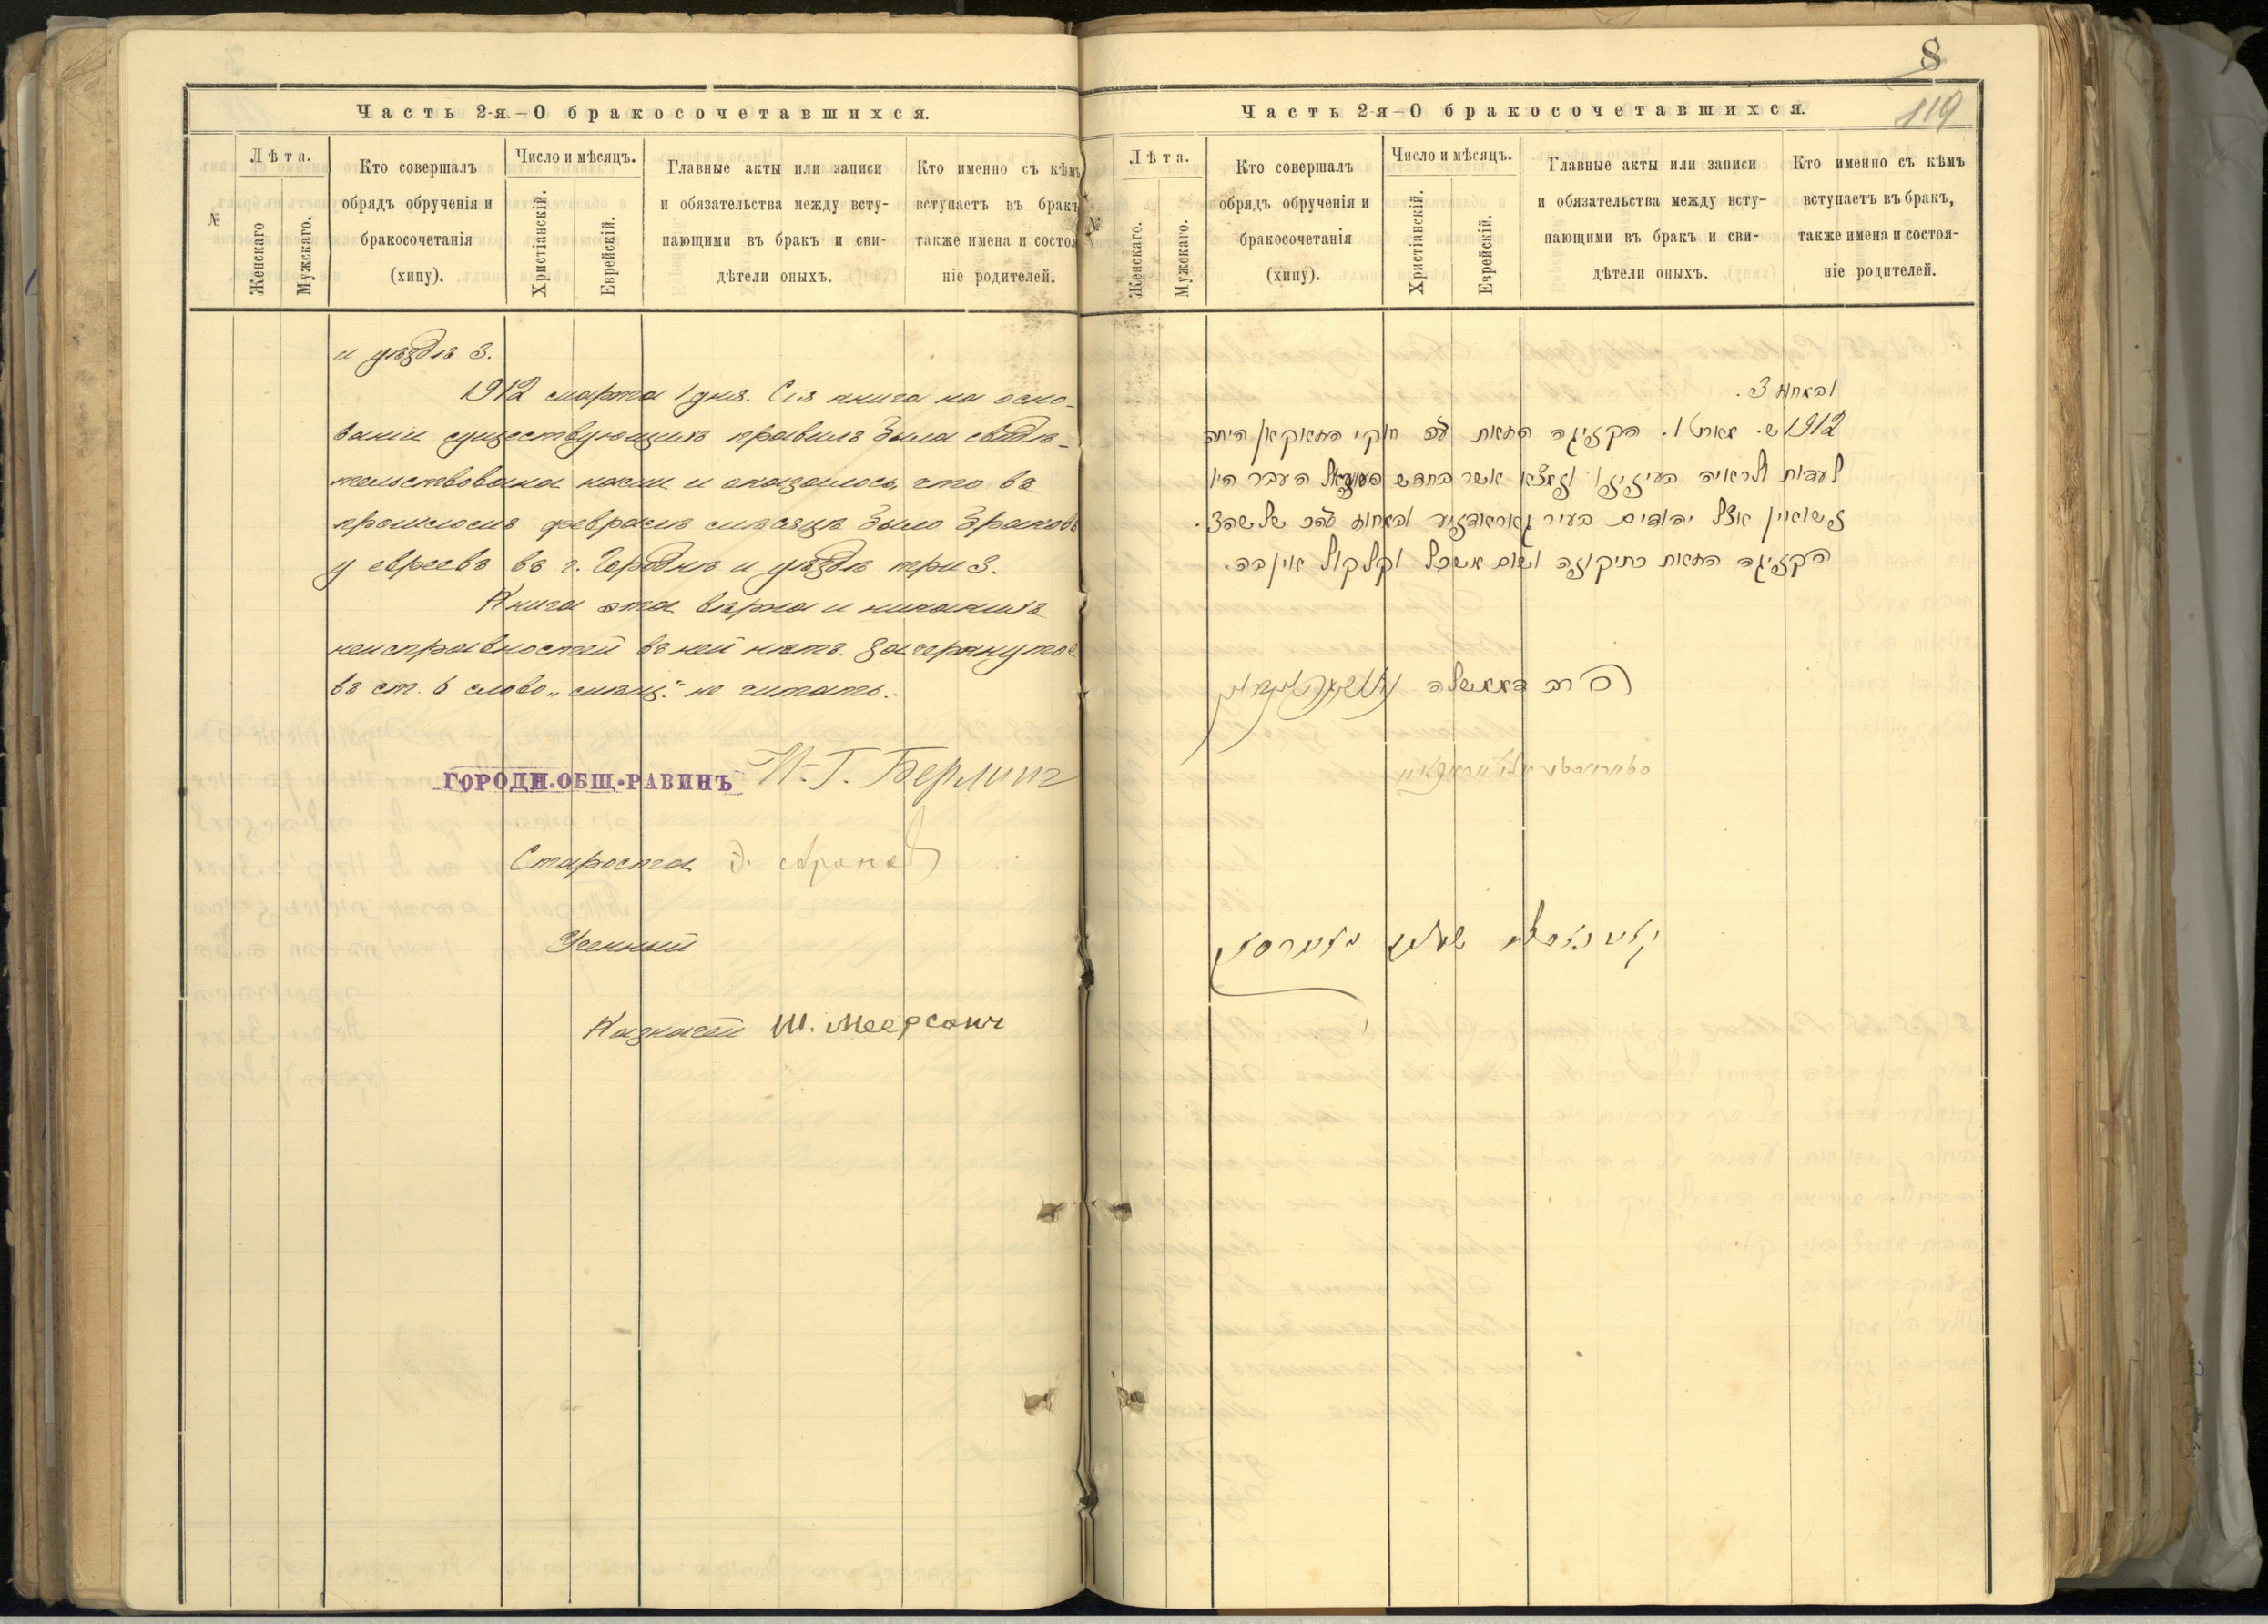 Часть 2-я.–О бракосочетавшихся.
№
Лѣта.
Женскаго
Мужскаго.
Кто совершалъ
обрядъ обрученія и
бракосочетанія
(хипу).
Число и мѣсяцъ.
Христіанскій.
Еврейскій.
Главные акты или записи
и обязательства между всту-
пающими въ бракъ и сви-
дѣтели оныхъ.
Кто именно съ кѣмъ
вступаетъ въ бракъ
также имена и состоя
ніе родителей.
и уѣздѣ 3.
1912 марта 1 дня. Сія книга на осно-
ваніи существующихъ правилъ была свидѣ-
тельствована нами и оказалось, что въ
прошломъ февралѣ мѣсяцѣ было браковъ
у евреевъ въ г. Городнѣ и уѣздѣ три 3.
Книга эта вѣрна и никакихъ
неисправностей въ ней нѣтъ. Зачеркнутое
въ ст. 6 слово „мѣсяц." не читать.
ГОРОДН.ОБЩ.РАВИНЪ
Г. Берлинъ
Староста
Ученный
Казначей Ш. Меерсонъ
8
119
Часть 2-я–О бракосочетавшихся.
№
Лѣта.
Женскаго.
Мужскаго.
Кто совершалъ
обрядъ обрученія и
бракосочетанія
(хипу).
Число и мѣсяцъ.
Христіанскій.
Еврейскій.
Главные акты или записи
и обязательства между всту-
пающими въ бракъ и сви-
дѣтели оныхъ.
Кто именно съ кѣмъ
вступаетъ въ бракъ,
также имена и состоя-
ніе родителей.
ובמחוז 3.
1912 ש. מארט 1. הקניגה הזאת עפ חוקי המאקאן היתה
לעדות ולראיה בעינינו ונמצא אשר בחדש העבר היו
נשואין אצל יהודים בעיר ובמחוז שלשה 3.
הקניגה הזאת כתיקונה ושום וקלקול אין בה.
הרב